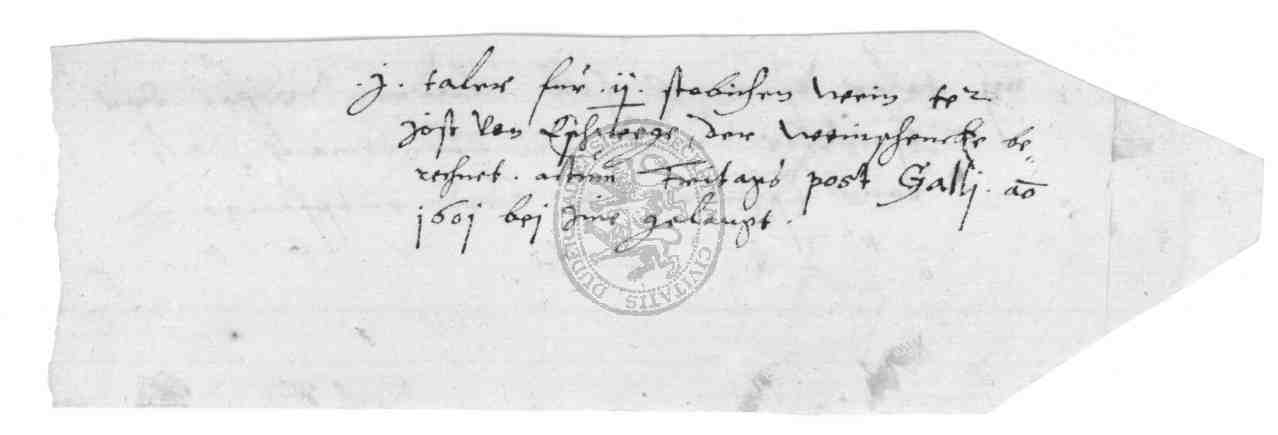 .j. taler für .ij. stobichen wein
Jost von Eschwege, der weinschencke be,
rechnet. actum Freitags post Galli. ao
1601 bej gelangt.
CIVITATIS